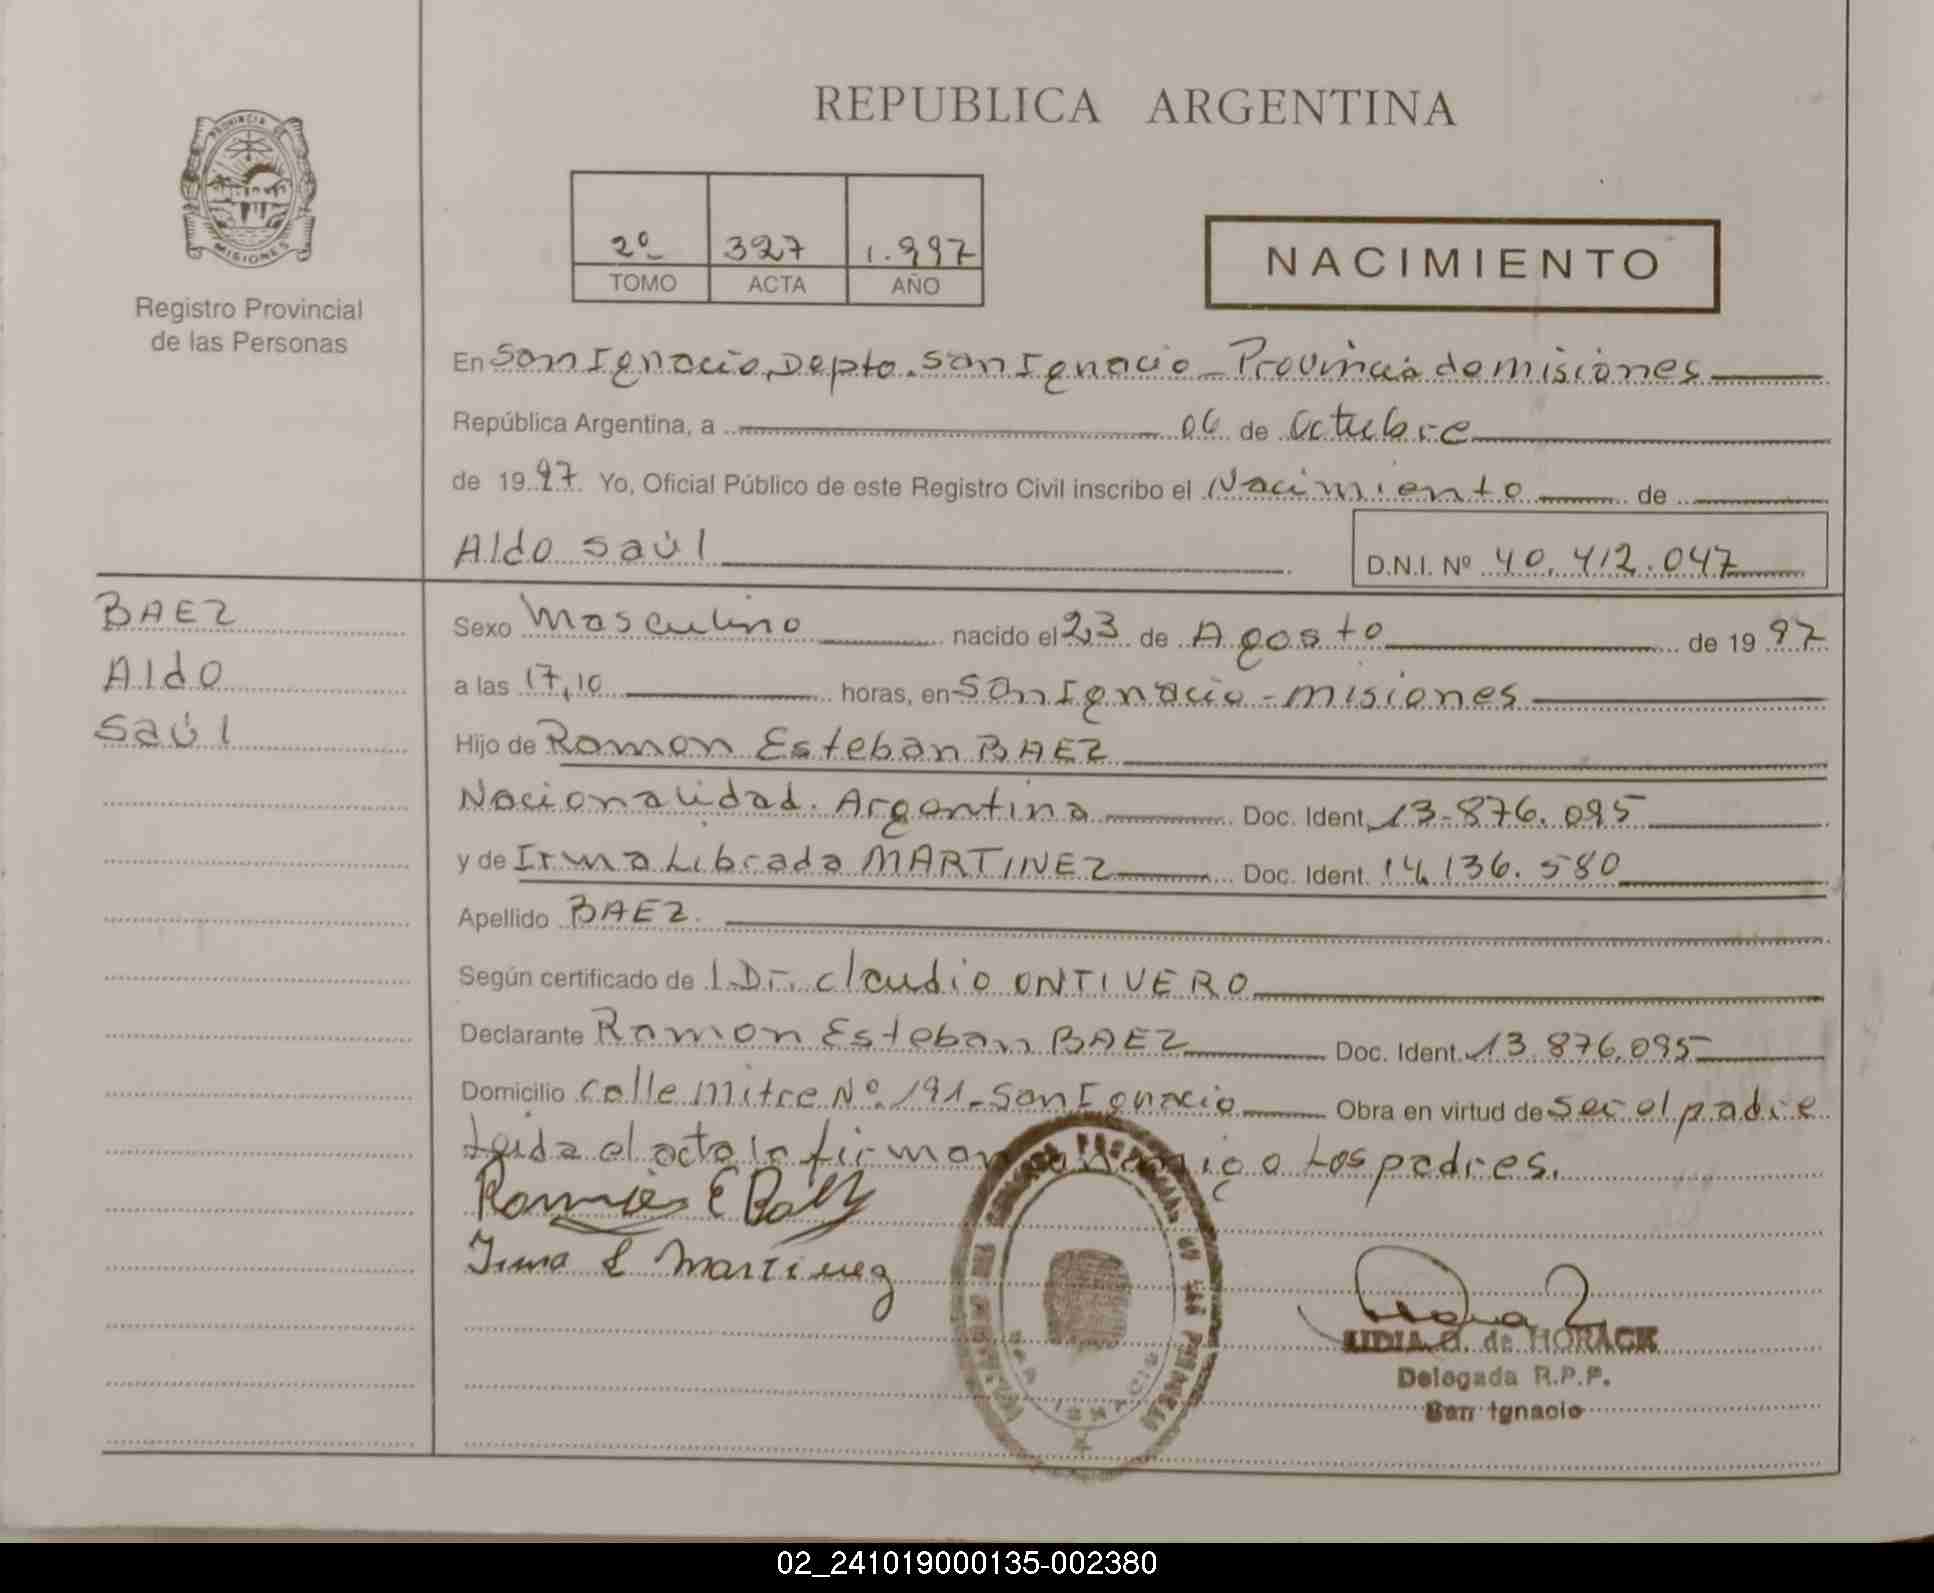 REPUBLICA ARGENTINA
PROVINCIA DE
MISIONES
Registro Provincial
de las Personas
2º 327 1.997
TOMO ACTA AÑO
NACIMIENTO
En San Ignacio, Depto. San Ignacio - Provincia de misiones
República Argentina, a 06 de octubre
de 1997 Yo, Oficial Público de este Registro Civil inscribo el Nacimiento de
Aldo Saúl
D.N.I. Nº 40.412.047
BAEZ
Aldo
Saúl
Sexo Masculino nacido el 23 de Agosto de 1997
a las 17,10 horas, en San Ignacio - misiones
Hijo de Ramon Esteban BAEZ
Nacionalidad. Argentina Doc. Ident. 13.876.095
y de Irma Librada MARTINEZ Doc. Ident. 14.136.580
Apellido BAEZ.
Según certificado de l.Dr. Claudio ONTIVERO
Declarante Ramon Esteban BAEZ Doc. Ident. 13.876.095
Domicilio Calle Mitre Nº 191 - San Ignacio Obra en virtud de ser el padre
Leida el acta la firman conmigo Los padres.
Ramon E Baez
Irma L Martinez
LIDIA G. de HORACK
Delegada R.P.P.
San Ignacio
SAN IGNACIO
02_241019000135-002380